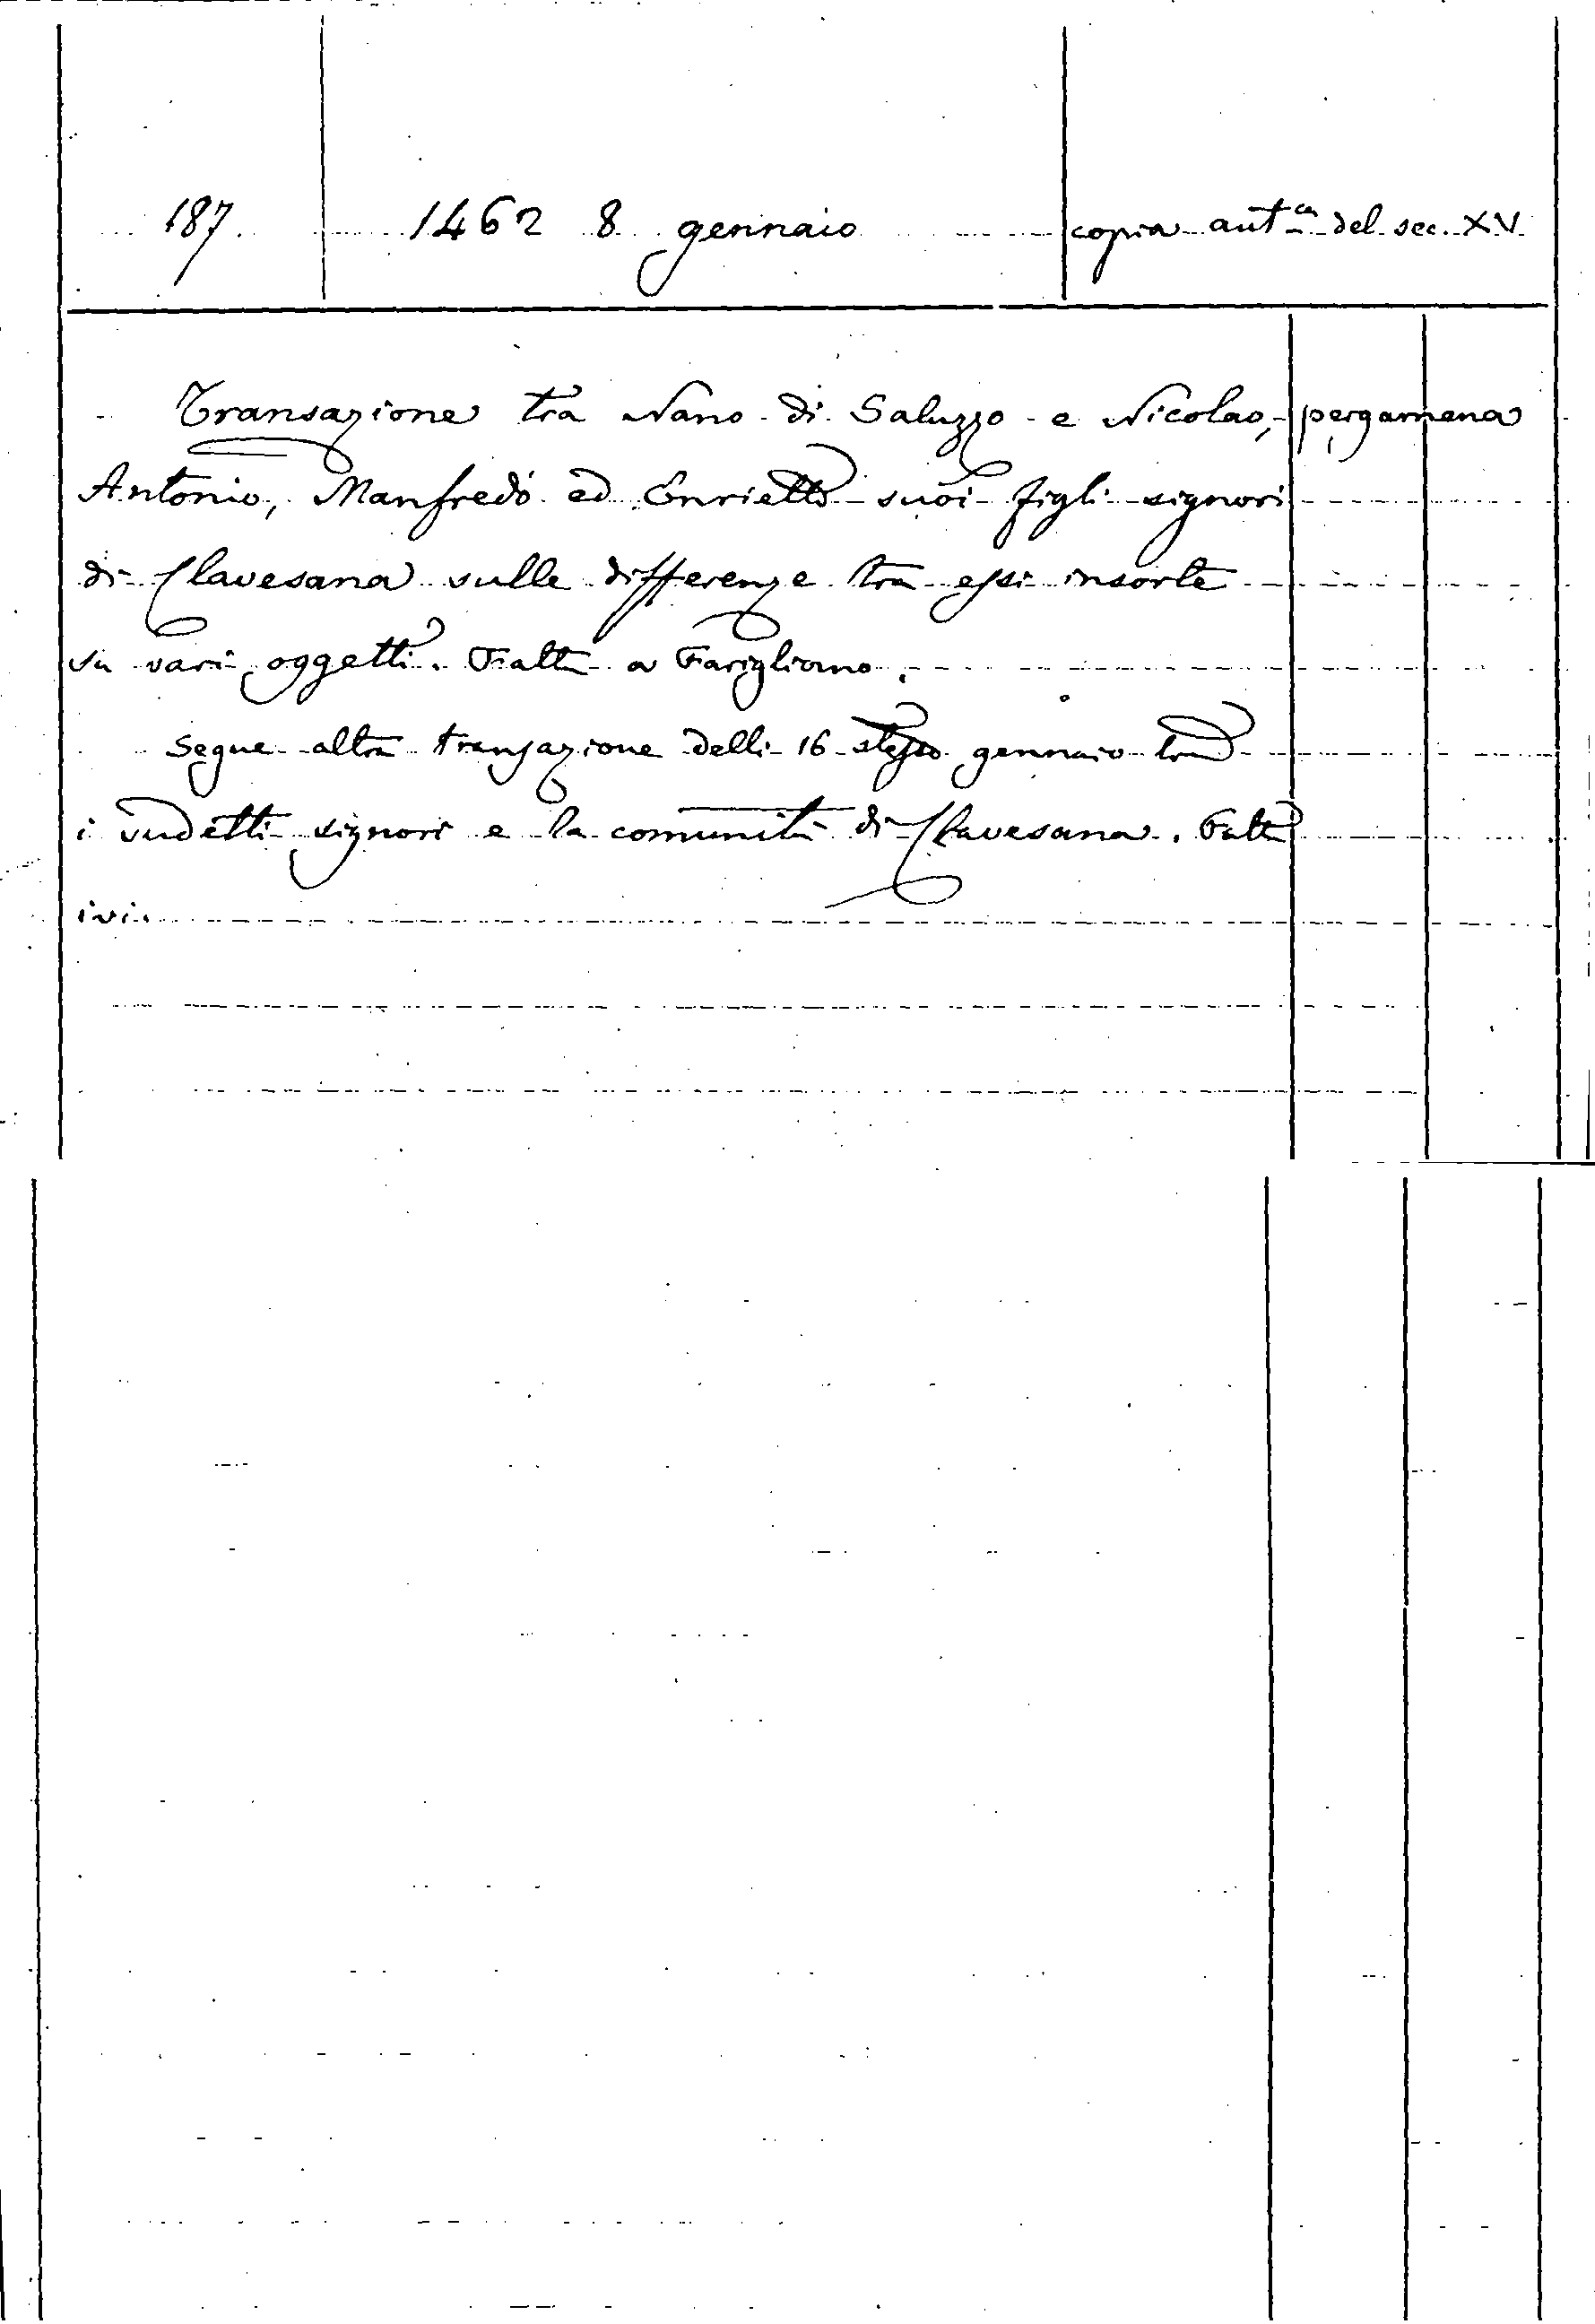 187. 1462 8 gennaio copia autca del sec. XV
Transazione tra Nano di Saluzzo e Nicolao, pergamena
Antonio, Manfredo ed Enrietto suoi figli signori
di Clavesana sulle differenze tra essi insorte
su vari oggetti. Fatta a Farigliano.
Segue altra transazione delli 16 stesso gennaio tra
i sudetti signori e la comunità di Clavesana. Fatta
ivi.